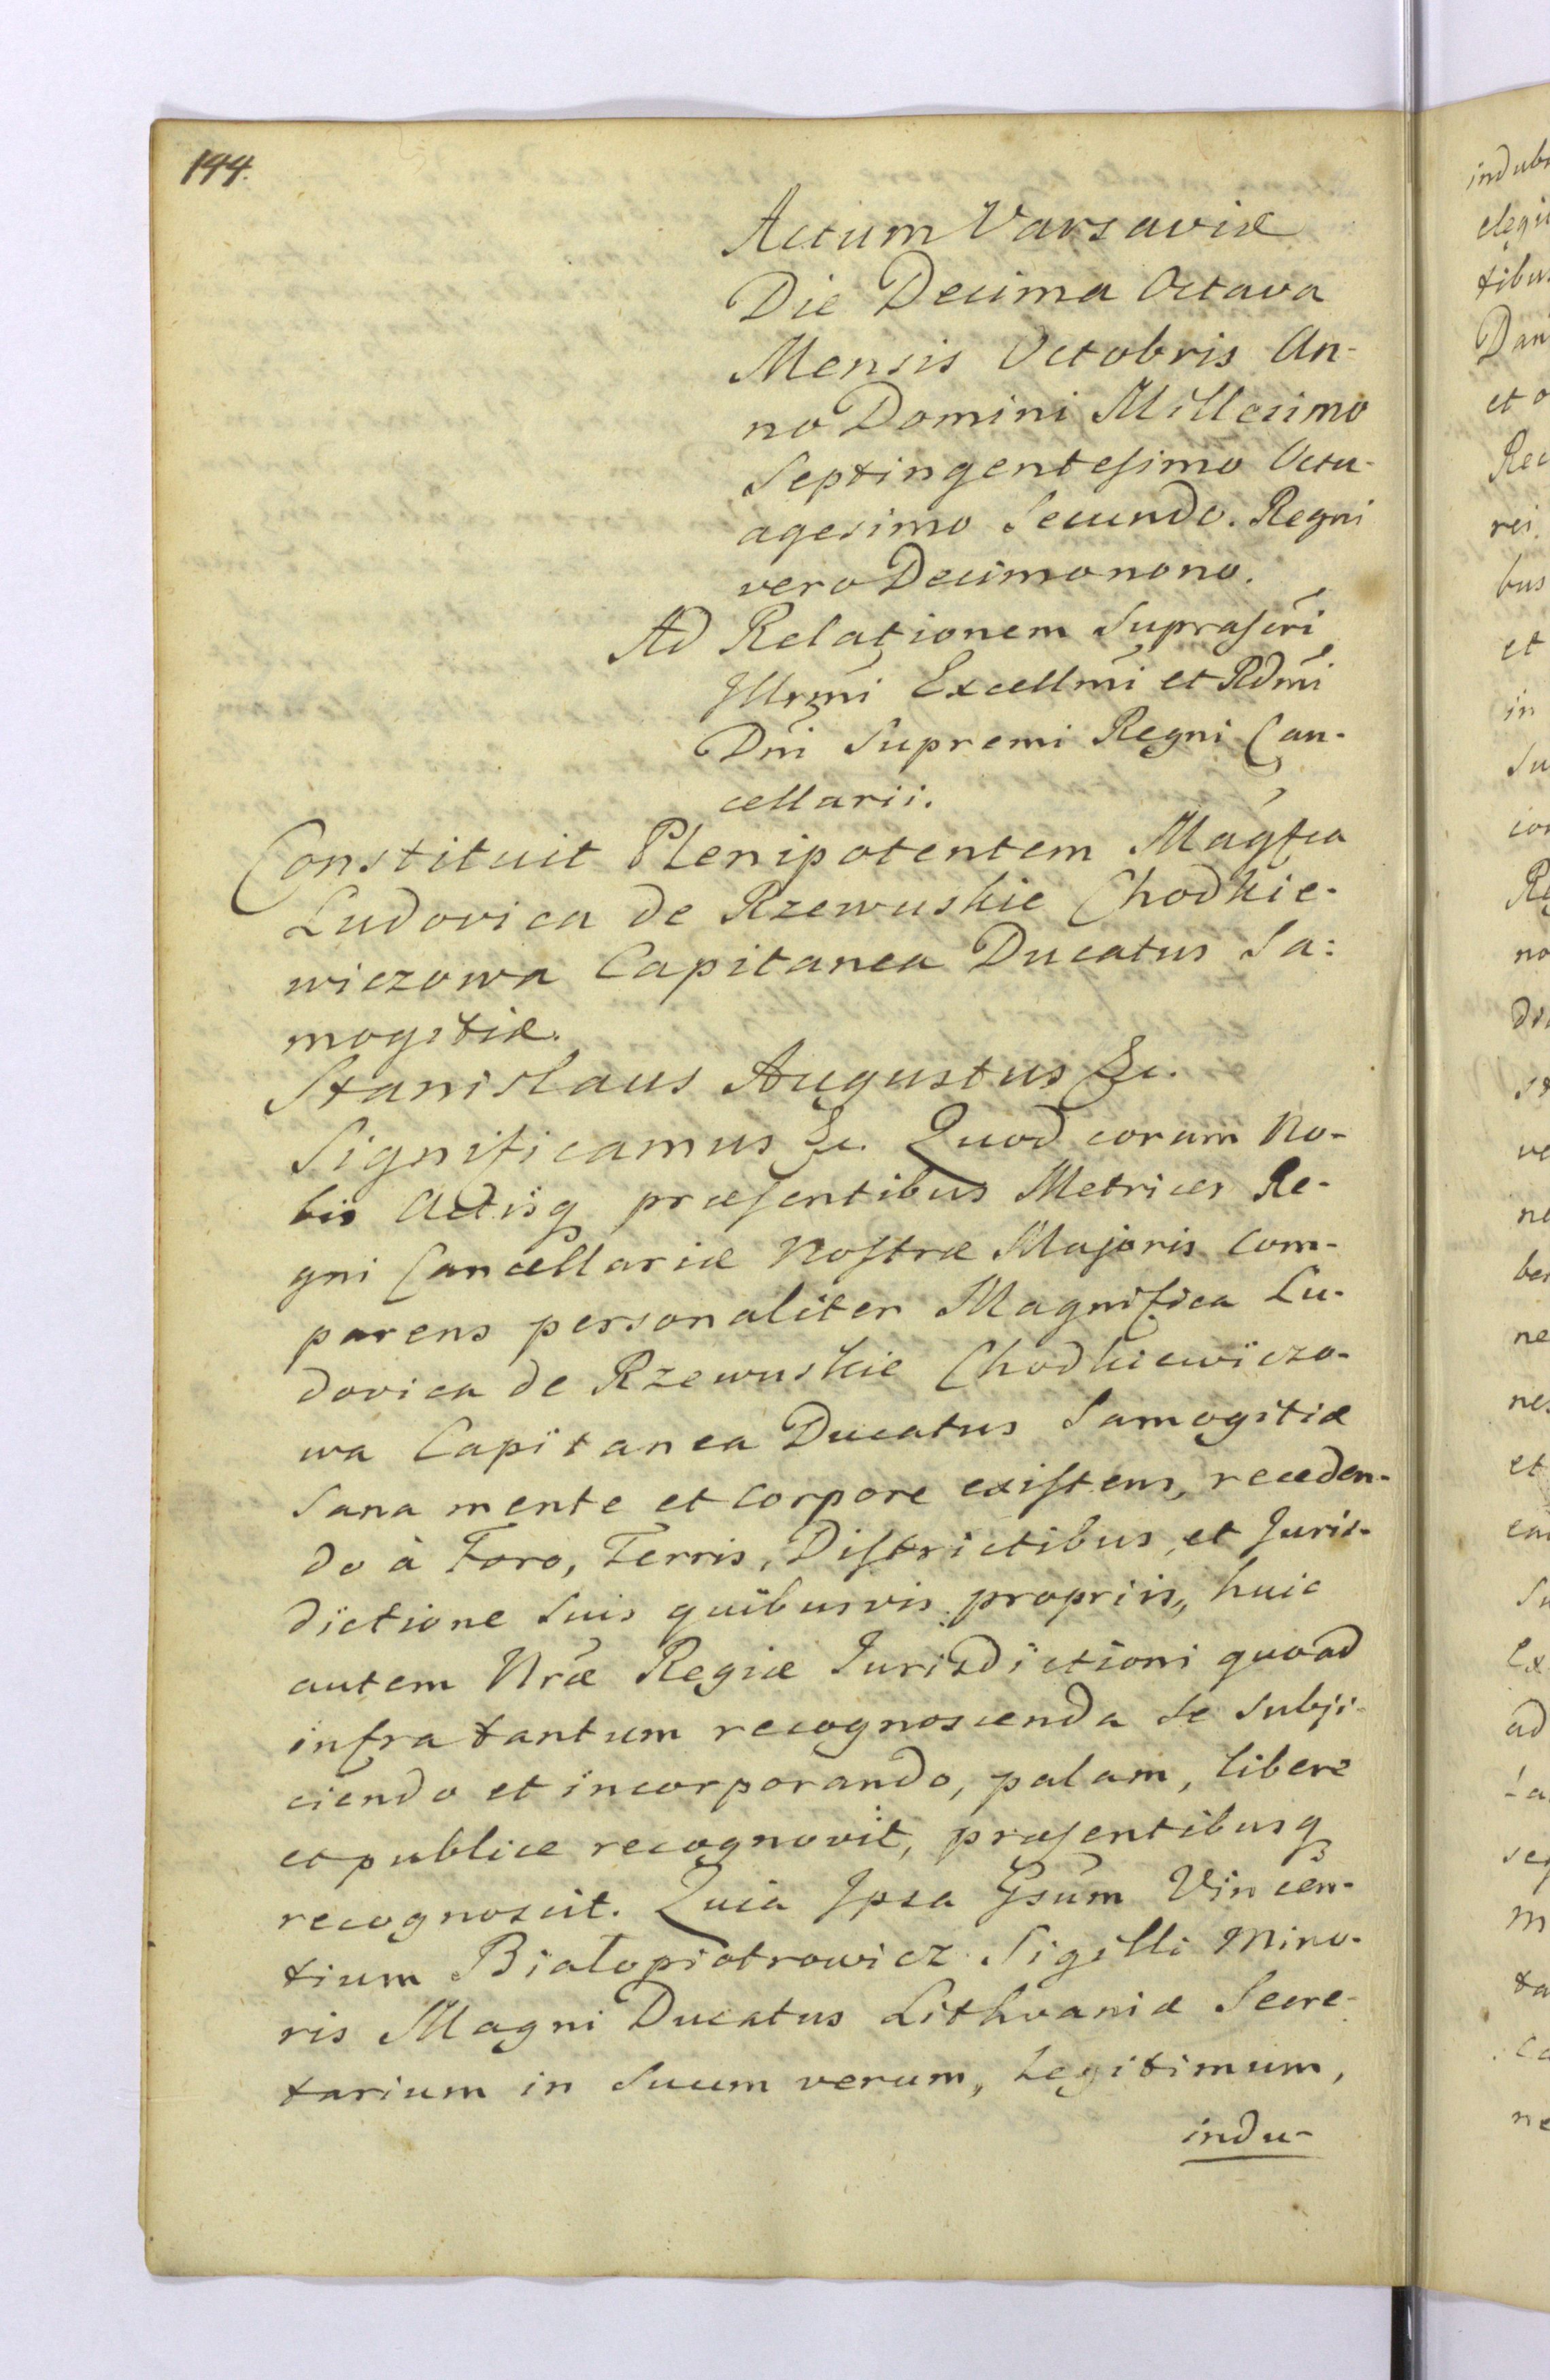 144.
Actum Varsaviæ
Die Decima Octava
Mensis Octobris An-
no Domini Millesimo
Septingentesimo Octu-
agesimo Secundo. Regni
vero Decimonono.
Ad Relationem Suprascri
Illrmi Excellmi et Rdmi
Dni Supremi Regni Can-
cellarii.
Constituit Plenipotentem Magfca
Ludovica de Rzewuskie Chodkie-
wiczowa Capitanea Ducatus Sa:
mogitiæ.
Stanislaus Augustus &c.
Significamus &c. Quod coram No-
bis Actisq præsentibus Metrices Re-
gni Cancellariæ Nostræ Majoris Com-
parens personaliter Magnifica Lu-
dovica de Rzewuskie Chodkiewiczo-
wa Capitanea Ducatus Samogitiæ
Sana mente et Corpore existens, receden-
do à Foro, Terris, Districtibus, et Juris-
dictione Suis quibusvis propriis, huic
autem Nræ Regiæ Jurisdictioni quoad
infra tantum recognoscenda se Subji-
ciendo et incorporando, palam, libere
et publice recognovit, præsentibusq
recognoscit. Quia Ipsa Gsum Vincen-
tium Białopiotrowicz Sigilli Mino-
ris Magni Ducatus Lithvaniæ Secre-
tarium in Suum verum, Legitimum,
indu-